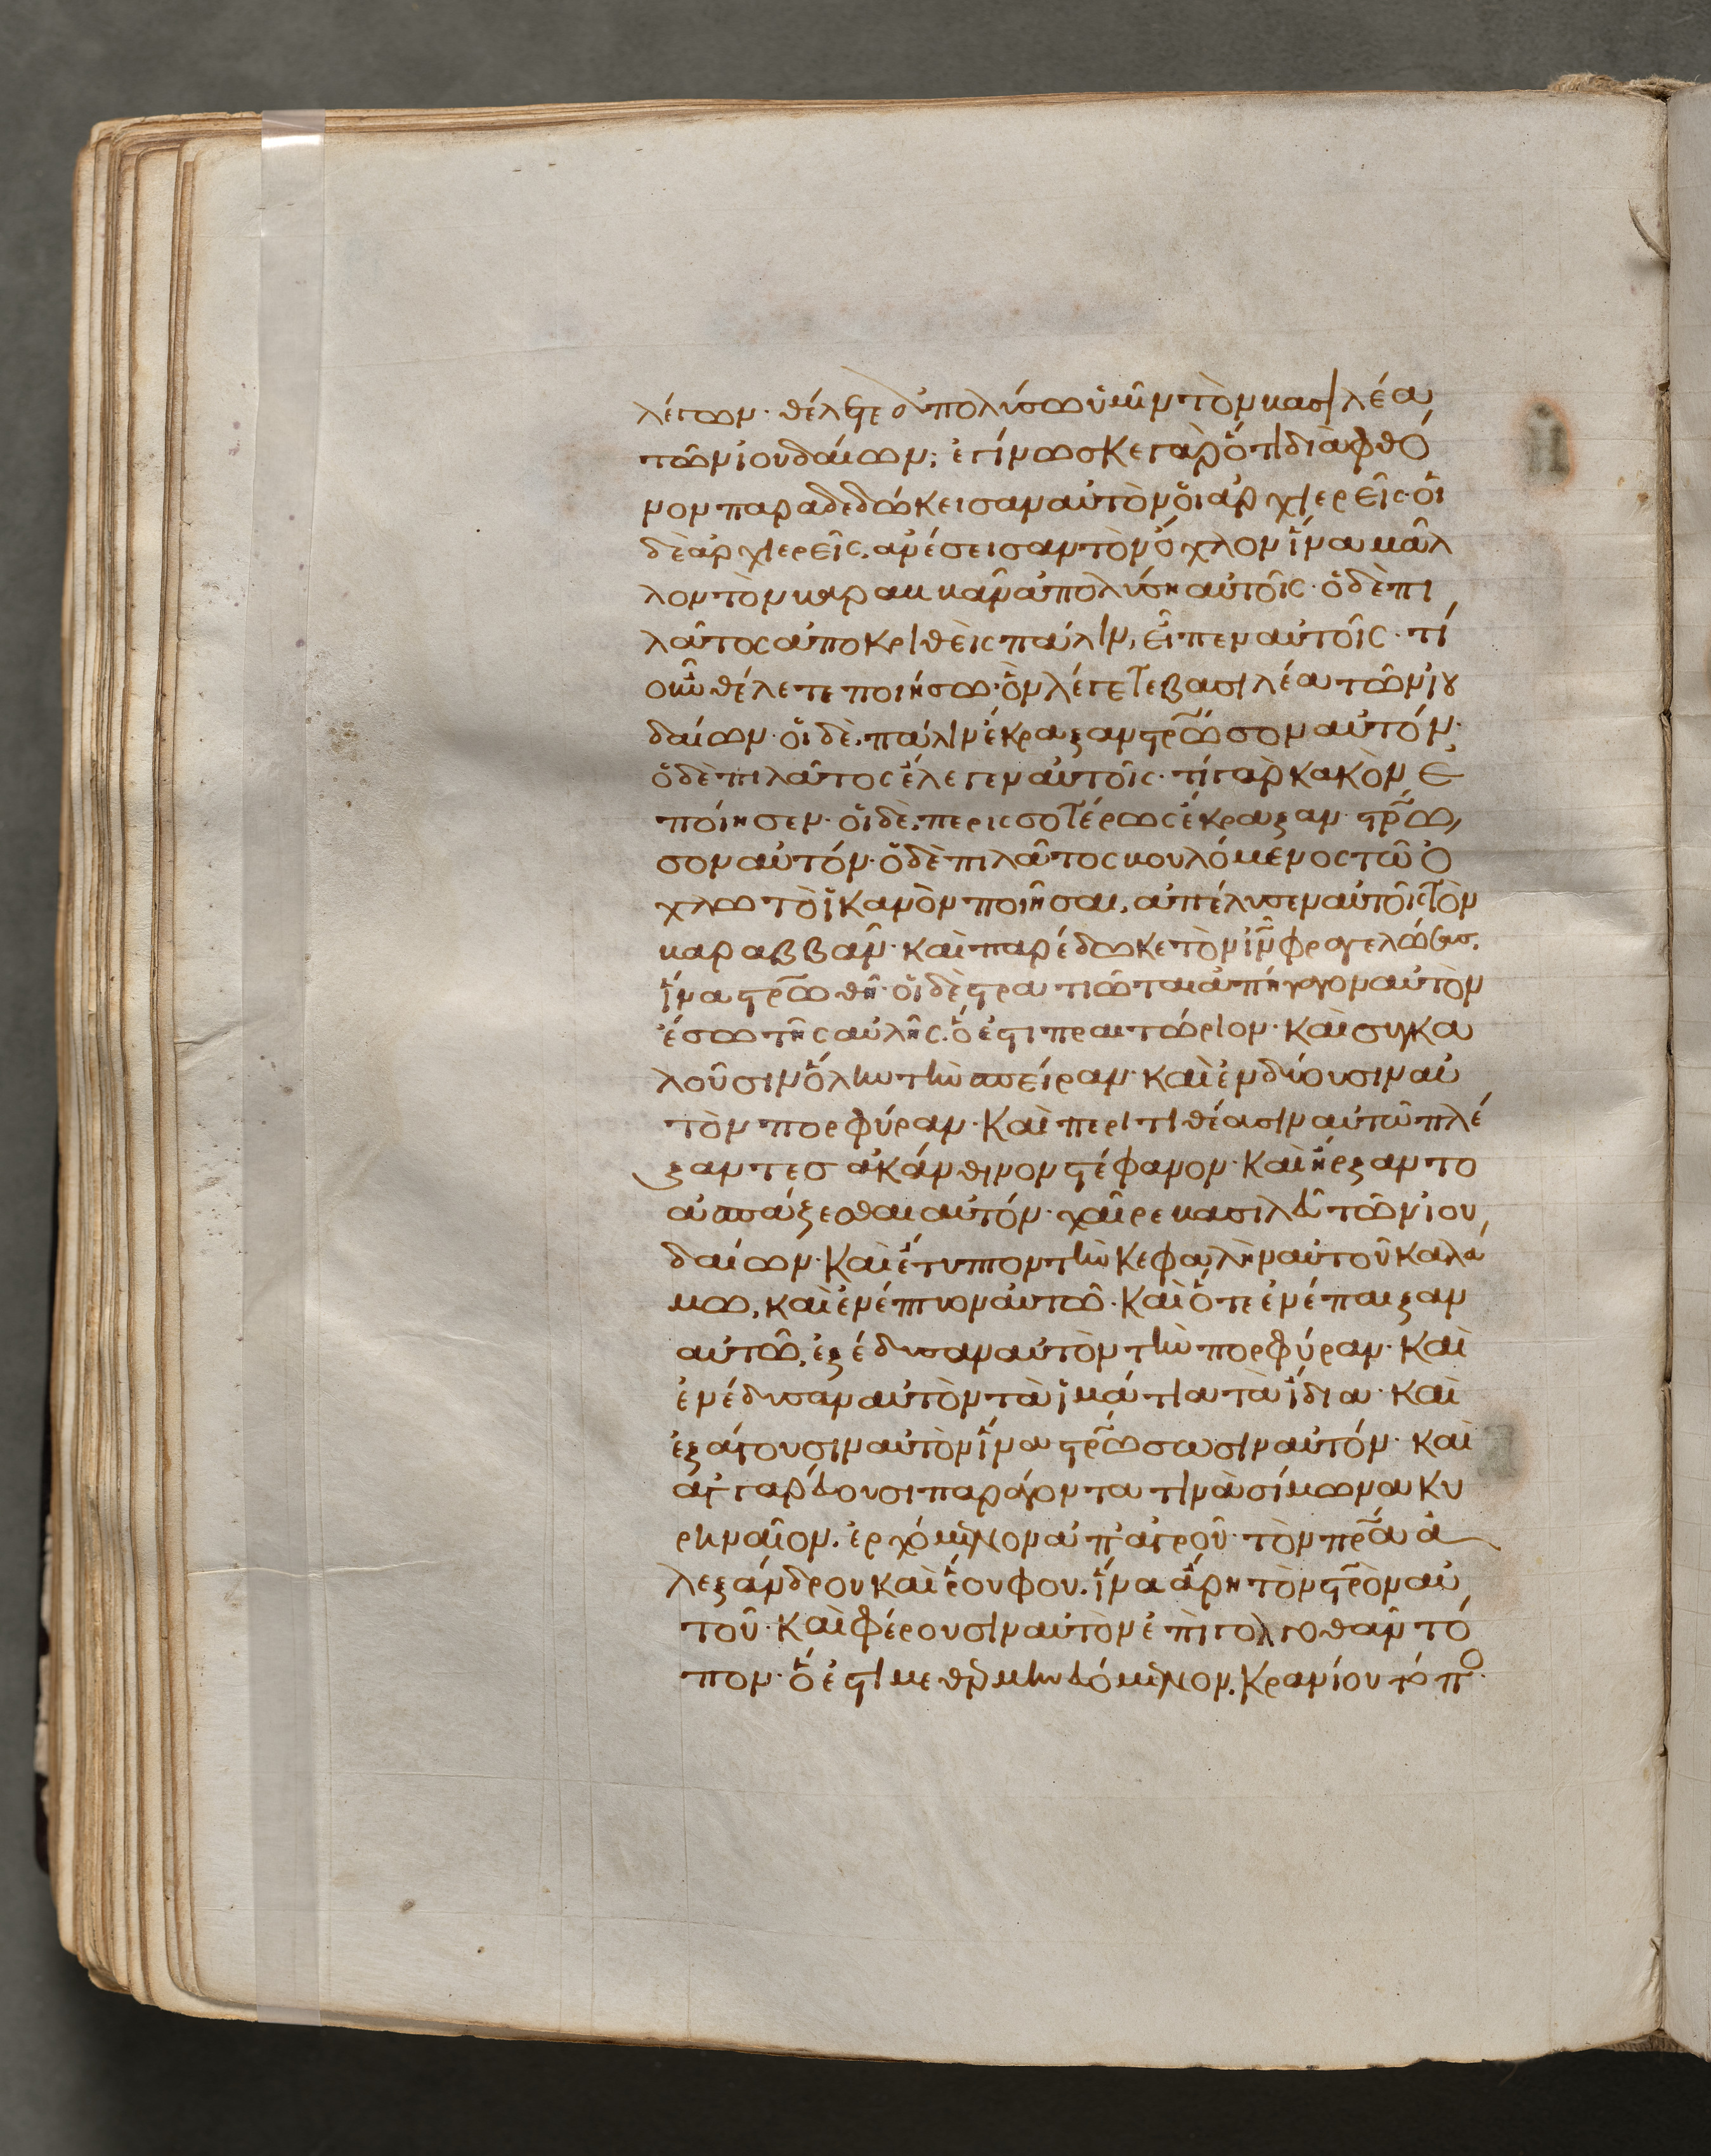 λέγων· θέλετε ἀπολύσω ὑμῖν τὸν βασιλέα
τῶν ἰουδαίων; ἐγίνωσκε γὰρ ὅτι διὰ φθό
νον παραδεδώκεισαν αὐτὸν ὁι ἀρχιερεῖς· ὁι
δὲ ἀρχιερεῖς, ἀνέσεισαν τὸν ὄχλον ἵνα μᾶλ
λον τὸν βαραββᾶν ἀπολύσῃ αὐτοῖς· ὁ δὲ πι
λᾶτος ἀποκριθεὶς πάλιν, εἶπεν αὐτοῖς· τί
οὖν θέλετε ποιήσω· ὃν λέγετε βασιλέα τῶν ἰου
δαίων· ὁι δὲ, πάλιν ἔκραξαν στρ̅ωσον αὐτόν·
ὁ δὲ πιλᾶτος ἔλεγεν αὐτοῖς· τί γὰρ κακὸν ἐ
ποίησεν· ὁι δὲ, περισσοτέρως ἔκραξαν· στρ̅ω
σον αὐτόν· ὁ δὲ πιλᾶτος βουλόμενος τῶ ὄ
χλω τὸ ἱκανὸν ποιῆσαι, ἀπέλυσεν αὐτοῖς τὸν
βαραββᾶν· καὶ παρέδωκε τὸν ι̅ν̅ φραγελώσας,
ἵνα στρ̅ωθῆ· ὁι δὲ στρατιῶται ἀπήγαγον αὐτὸν
ἔσω τῆς αὐλῆς, ὅ ἐστι πραιτώριον· καὶ συγκα
λοῦσιν ὅλην τὴν σπεῖραν· καὶ ἐνδύουσιν αὐ
τὸν πορφύραν· καὶ περιτιθέασιν αὐτῶ πλέ
ξαντες ἀκάνθινον στέφανον· καὶ ἤρξαντο
ἀσπάζεσθαι αὐτόν· χαῖρε βασιλεῦ τῶν ἰου
δαίων· καὶ ἔτυπτον τὴν κεφαλὴν αὐτοῦ καλά
μω, καὶ ἐνέπτυον αὐτῶ· καὶ ὅτε ἐνέπαιξαν
αὐτῶ, ἐξέδυσαν αὐτὸν τὴν πορφύραν· καὶ
ἐνέδυσαν αὐτὸν τὰ ἱμάτια τὰ ἴδια· καὶ
ἐξάγουσιν αὐτὸν ἵνα στρ̅ωσωσιν αὐτόν· καὶ
ἀγγαρεύουσι παράγοντα τινὰ σίμωνα κυ
ρηναῖον, ἐρχόμενον ἀπ' ἀγροῦ· τὸν πρ̅α ἀ
λεξάνδρου καὶ ῥούφου, ἵνα ἄρη τὸν στρ̅ὸν αὐ
τοῦ· καὶ φέρουσιν αὐτὸν ἐπὶ γολγοθᾶν τό
πον· ὅ ἐστι μεθερμηνευόμενον, κρανίου τόπο·